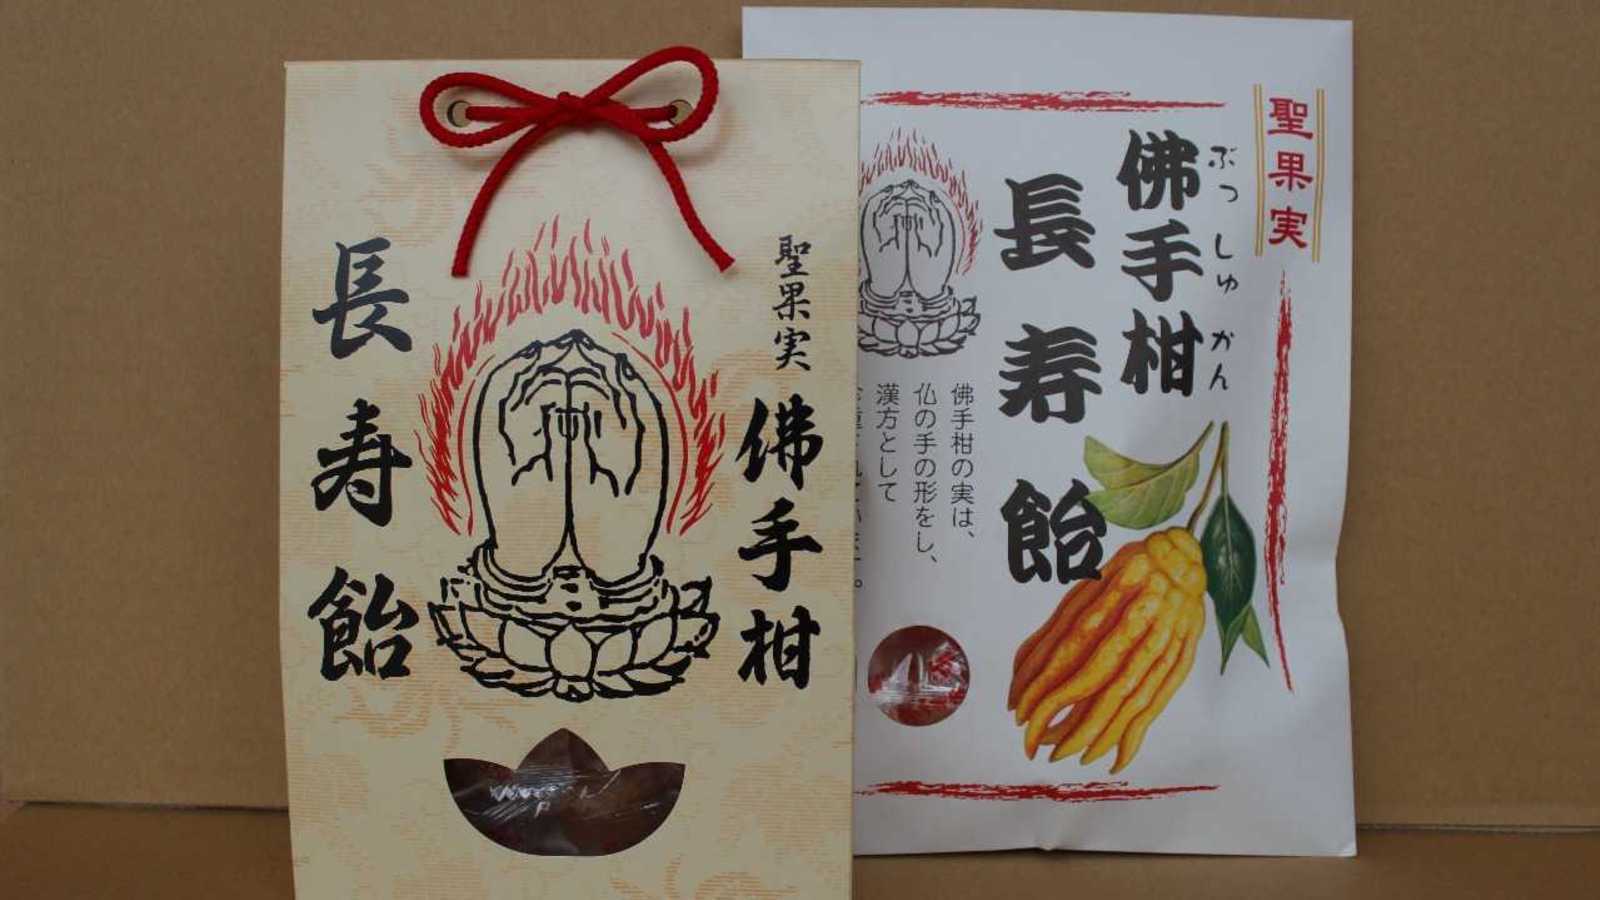 聖果実
佛手柑
長寿飴
聖果実
佛手柑
ぶっしゅかん
長寿飴
佛手柑の実は、
仏の手の形をし、
漢方として